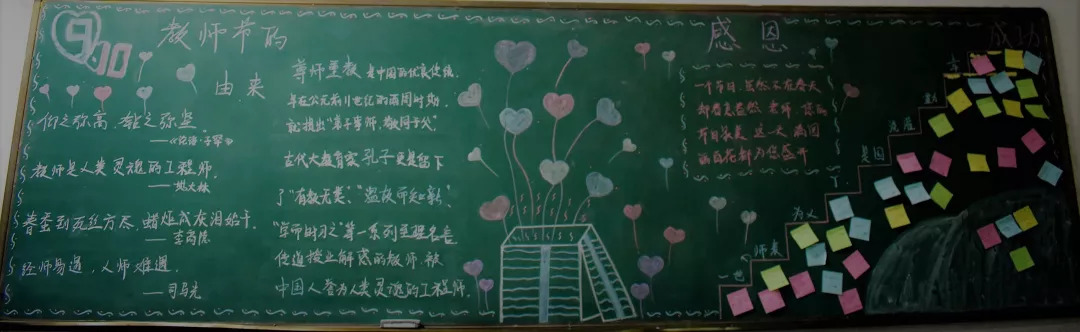 9.10
教师节的
由来
仰之弥高，钻之弥坚。
——《论语·子罕》
教师是人类灵魂的工程师。
春蚕到死丝方尽，蜡炬成灰泪始干。
——李商隐
经师易遇，人师难遇。
——司马光
尊师重教 是中国的优良传统，
早在公元前11世纪的西周时期，
就提出"弟子事师，敬同于父"。
古代大教育家孔子更是留下
了"有教无类"、"温故而知新"、
"学而时习之"等一系列至理名言
传道授业解惑的教师，被
中国人誉为人类灵魂的工程师。
感恩
一个节日，虽然不在春天
却春意盎然，老师，您的
节日最美，这一天，满园
的百花都为您盛开
成功
一世
师表
为人
是因